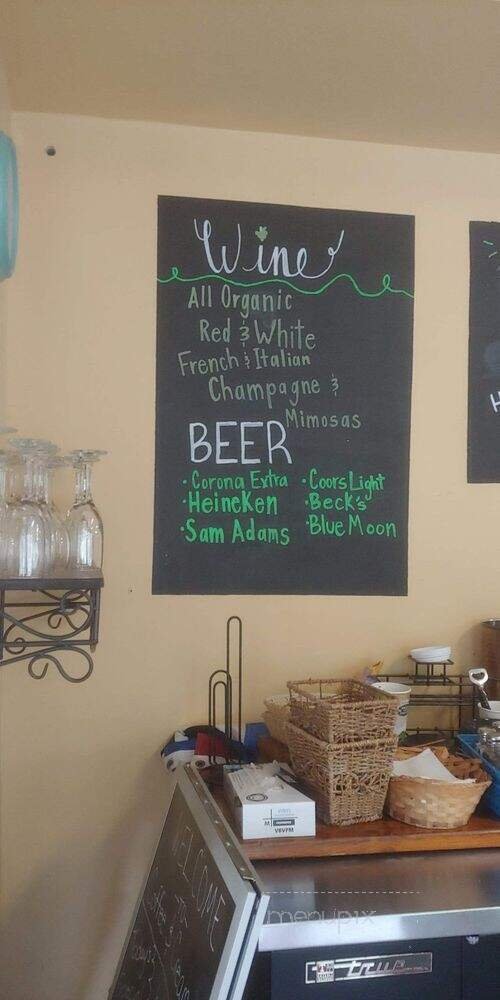 Wine
All Organic
Red & White
French & Italian
Champagne &
Mimosas
BEER
• Corona Extra
• Heineken
• Sam Adams
• Coors Light
• Beck's
• Blue Moon
H
M
VBVFM
WELCOME
menupix
true